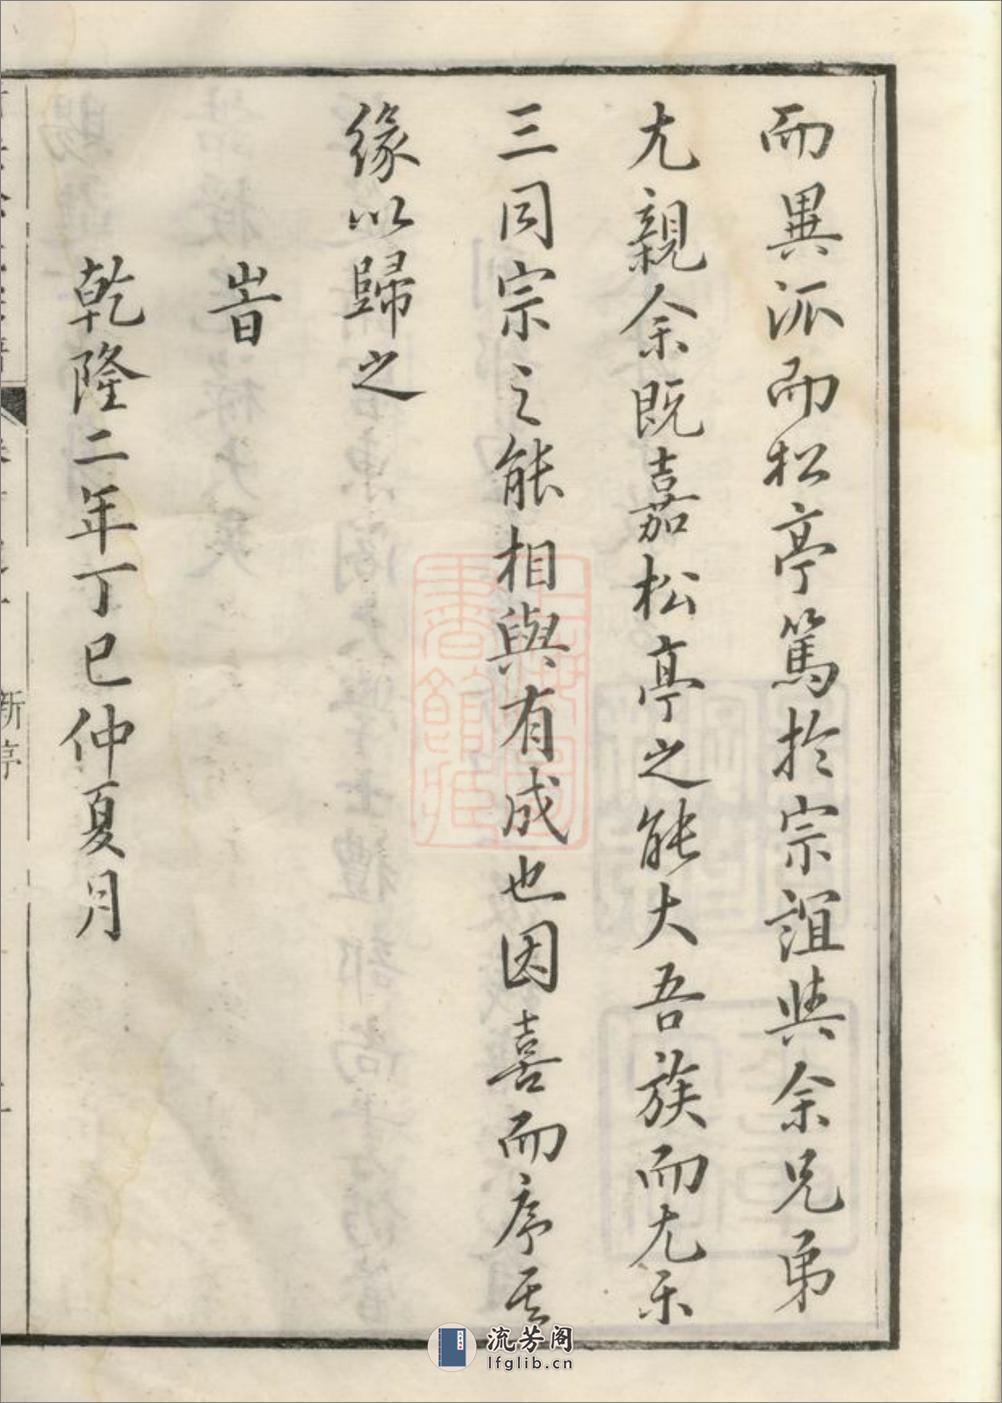 而異派而松亭篤於宗誼與余兄弟
尤親余既嘉松亭之能大吾族而尤樂
三同宗之能相與有成也因喜而序其
緣以歸之
旹
乾隆二年丁巳仲夏月
新序
流芳阁
lfglib.cn